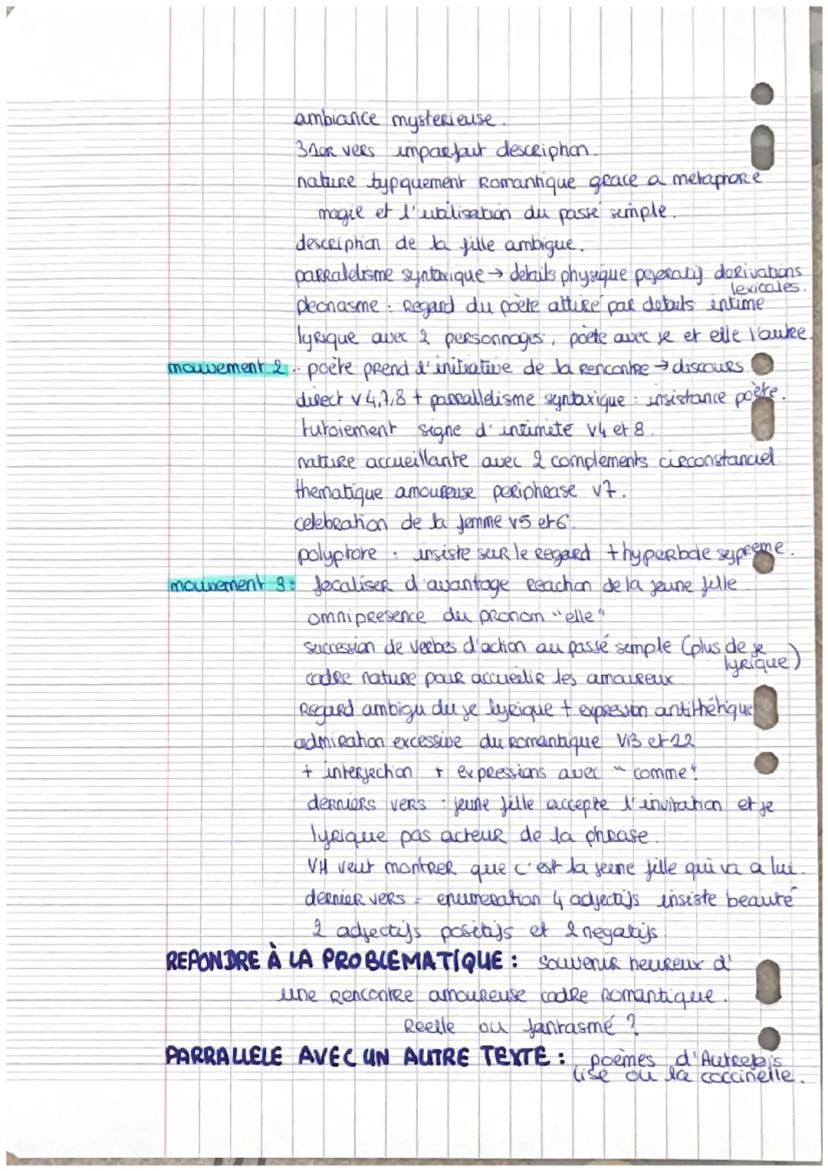 ambiance mysterieuse.
3 1er vers imparfait description.
nature typquement Romantique grace a metaphore
magie et l'utilisation du passé simple.
description de la fille ambigue.
parraleldisme syntaxique → details physique pejoratif derivations
lexicales.
pleonasme : Regard du poète attiré par details intime
lyrique avec 2 personnages, poète avec je et elle l'autre.
mouvement 2 : poète prend l'initiative de la rencontre → discours
direct v 4,7,8 + parralleldisme syntaxique : insistance poète.
tutoiement signe d'intimité v4 et 8.
nature accueillante avec 2 complements circonstanciel
thematique amoureuse periphrase v7.
celebration de la femme v5 et 6.
polyptore : insiste sur le regard + hyperbole supreme.
mouvement 3 : focaliser d'avantage reaction de la jeune fille
omnipresence du pronom "elle"
succession de verbes d'action au passé semple (plus de je
lyrique)
cadre nature pour accueilir les amoureux
Regard ambigu du je lyrique + expression antithétique
admiration excessive du romantique V13 et 12
+ interjection + expressions avec "comme"
derniers vers : jeune fille accepte l'invitation et je
lyrique pas acteur de la phrase.
VH veut montrer que c'est la jeune fille qui va a lui.
dernier vers = enumeration 4 adjectifs insiste beauté
2 adjectifs positifs et 2 negatifs.
REPONDRE À LA PROBLEMATIQUE : souvenir heureux d'
une rencontre amoureuse cadre romantique.
Reelle ou fantasmé ?
PARRALLELE AVEC UN AUTRE TEXTE : poèmes d'Autrefois
lise ou la coccinelle.